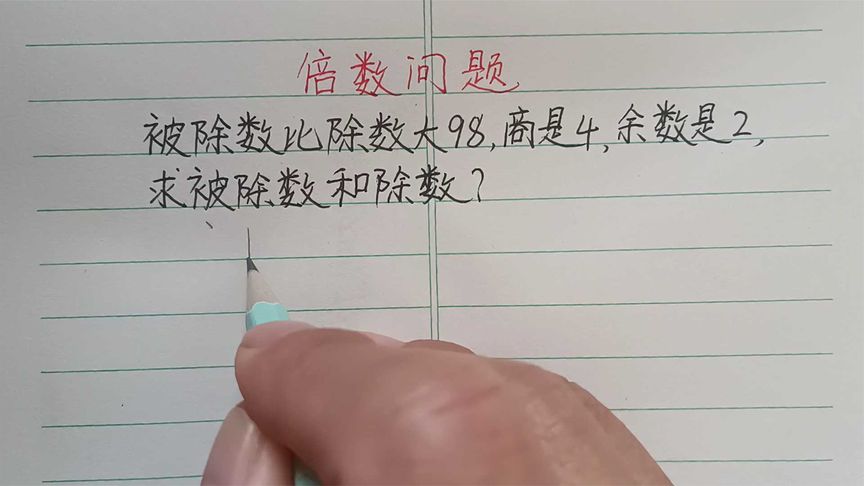 倍数问题
被除数比除数大98,商是4,余数是2,
求被除数和除数?